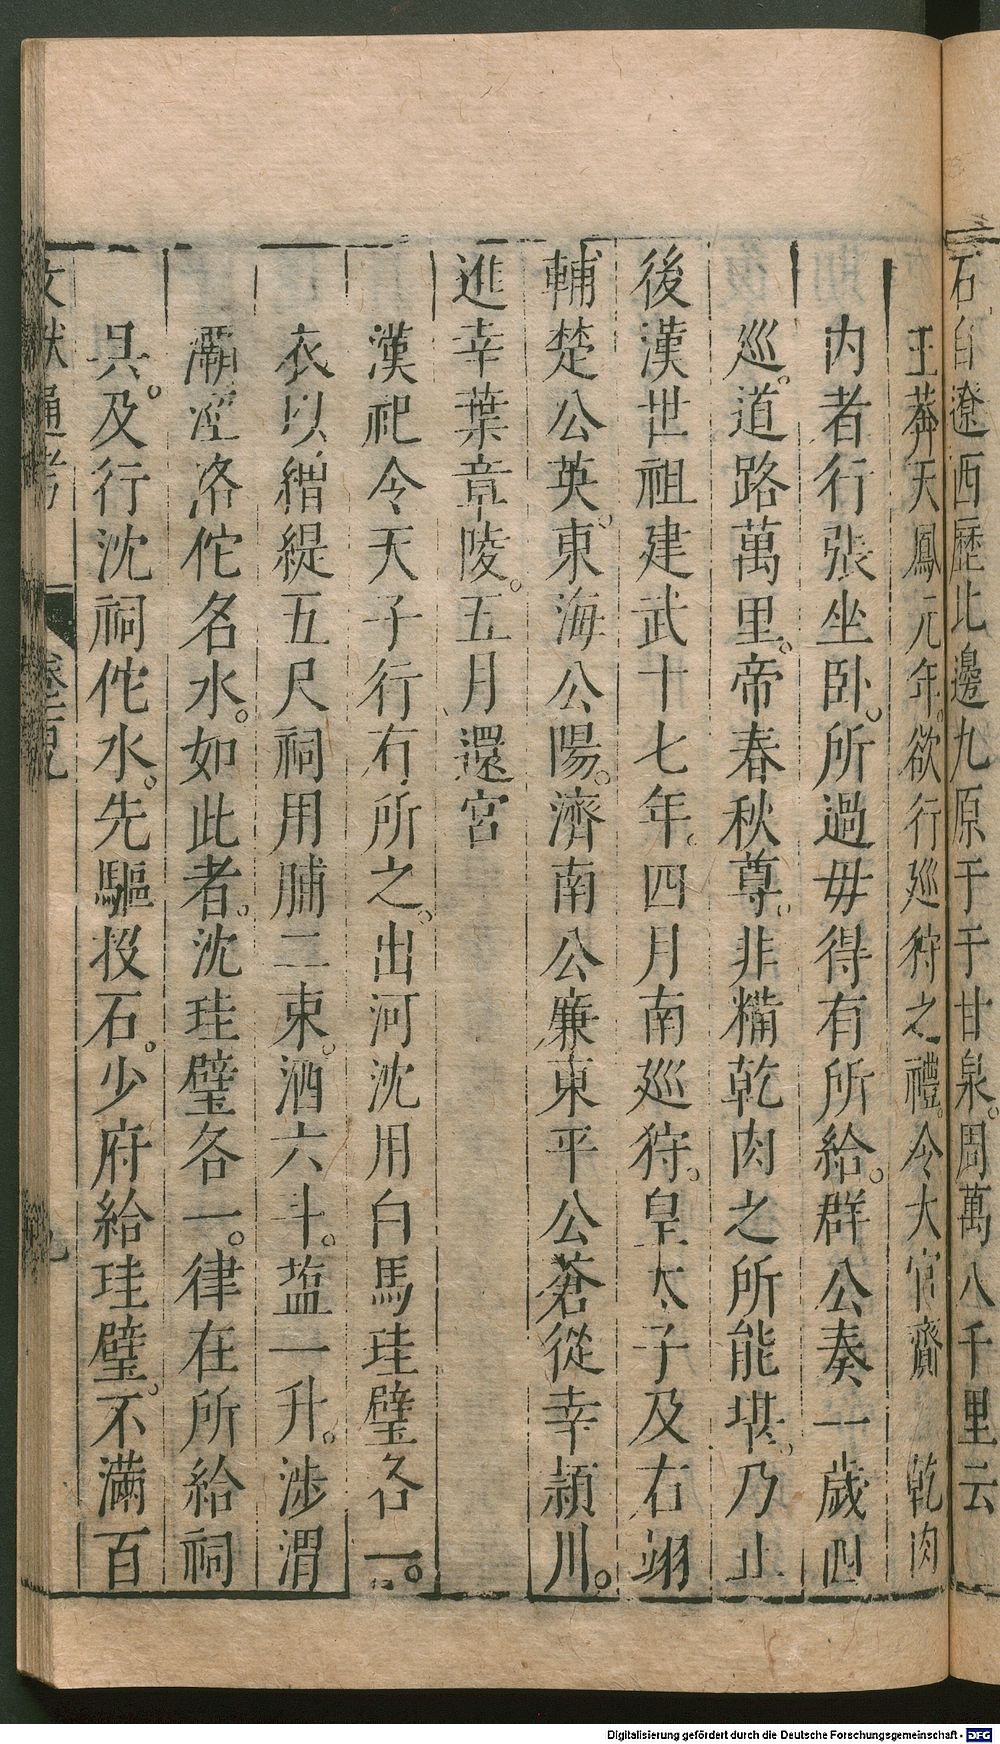 石自遼西歷北邊九原于于甘泉。周萬八千里云
王莽天鳳元年。欲行廵狩之禮。令大官齎 乾肉
内者行張坐卧。所過毋得有所給。群公奏一歲四
廵。道路萬里。帝春秋尊。非糒乾肉之所能堪。乃止
後漢世祖建武十七年。四月南廵狩。皇太子及右翊
輔楚公英。東海公陽。濟南公康東平公蒼從幸頴川。
進幸葉章陵。五月還宮
漢祀令天子行有所之。出河沈用白馬珪璧各一。
衣以繒緹五尺祠用脯二束。酒六斗。塩一升。涉渭
灞涇洛佗名水。如此者。沈珪璧各一。律在所給祠
具。及行沈祠佗水。先驅投石。少府給珪璧。不滿百
文獻通考 九
Digitalisierung gefördert durch die Deutsche Forschungsgemeinschaft - DFG